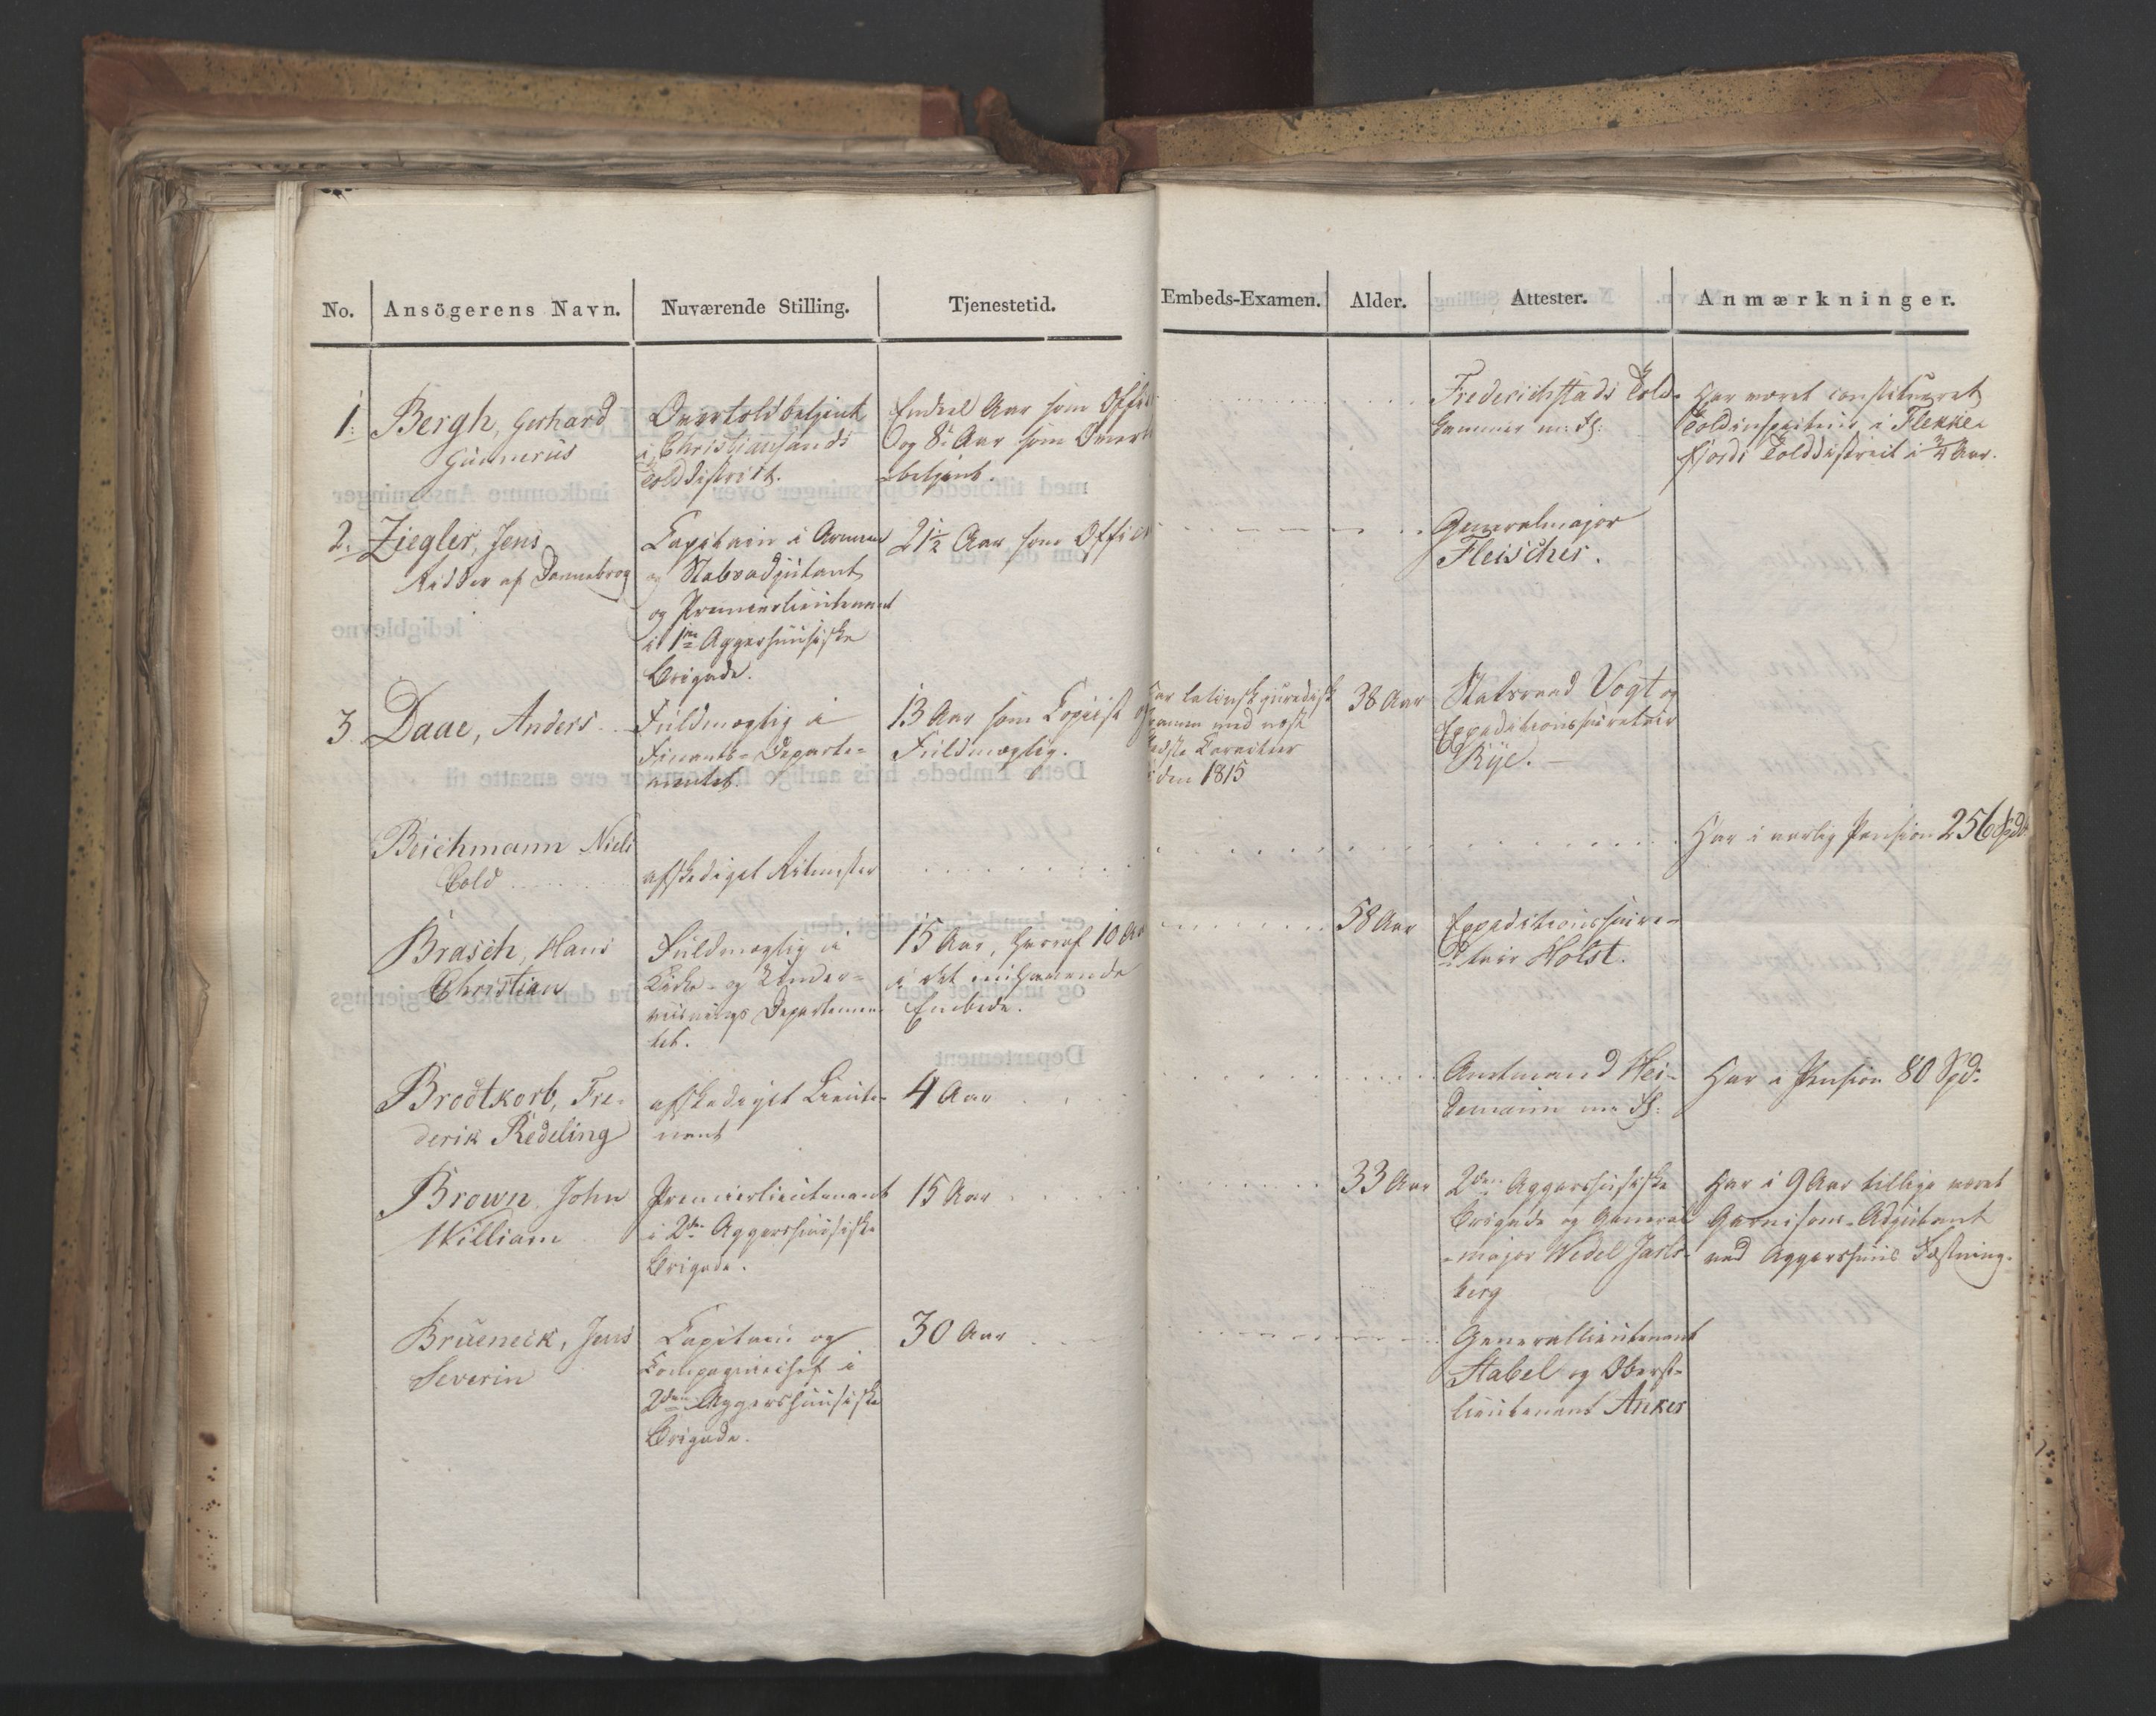 No. Ansögerens Navn. Nuværende Stilling. Tjenestetid. Embeds-Examen. Alder. Attester. Anmærkninger.
1. Bergh, Gerhard
Gunnerus
Overtoldbetjent
i Christiansands
Tolddistrikt.
Endeel Aar som
og 8: Aar som
betjent.
Frederichstads Told-
kammer m: fl:
Har været constitueret
Toldinspecteur i Flekke-
fjords Tolddistrict i 3/4 Aar.
2. Ziegler, Jens
Ridder af Dannebrog
Capitain i Armeen
og Stabsadjutant
og Premierlieutenant
i 1ste Aggershuusiske
Brigade.
21 1/2 Aar som
Generalmajor
Fleischer.
3. Daae, Anders
Fuldmægtig i
Finants-Departe-
mentet.
13 Aar som Copiist og
Fuldmægtig.
Har latinsk juridisk
Examen med
bedste Caracteer
siden 1815
38 Aar
Statsraad Vogt og
Expeditionssecretair
Rye.
Beichmann Niels
Cold
afskediget Ritmester
Har i aarlig Pension 256 Spd:
Brasch, Hans
Christian
Fuldmægtig i
Kirke- og Under-
visnings Departemen-
tet.
15 Aar, heraf 10 Aar
i det nuhavende
Embede.
58 Aar
Expeditionssecre-
tair Holst.
Brodtkorb, Fre-
derik Redeling
afskediget Lieute-
nant
4 Aar
Amtmand Hei-
demann m: fl:
Har i Pension 80 Spd:
Brown, John
William
Premierlieutenant
i 2den Aggershuusiske
Brigade.
15 Aar
33 Aar
2den Aggershuusiske
Brigade og General
-major Wedel Jarls-
berg
Har i 9 Aar tillige været
Garnisons-Adjutant
ved Aggershuus Fæstning.
Brüeneck, Jens
Severin
Capitain og
Compagniechef i
2den Aggershuusiske
Brigade.
30 Aar
Generallieutenant
Stabel og Oberst-
lieutenant Anker